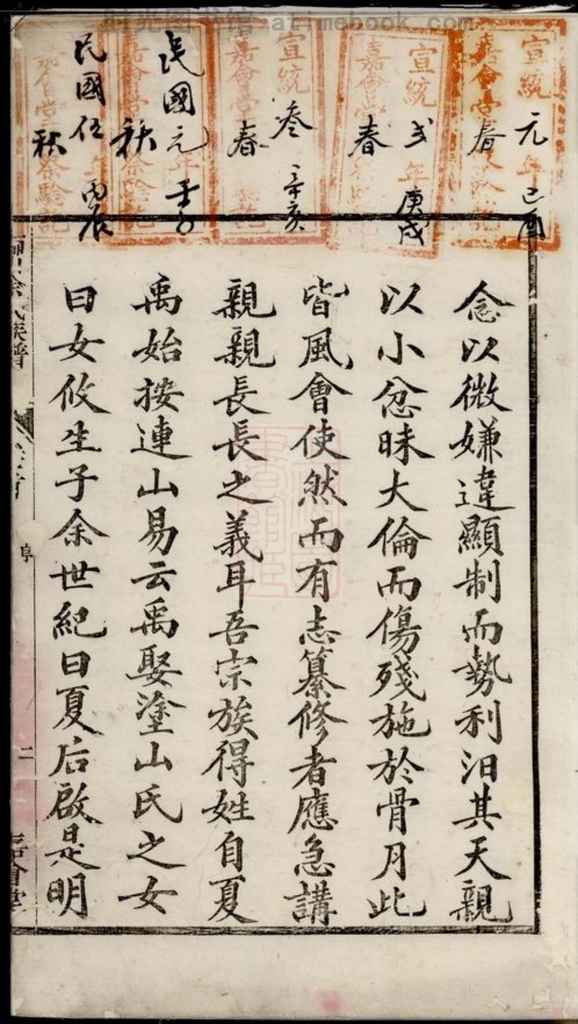 宣統元年己酉
春
宣統弍年庚戌
春
宣統叁 辛亥
春
民國元年壬子
秋
民國伍 丙辰
秋
念以微嫌違顯制而勢利汨其天親
以小忿昧大倫而傷殘施於骨月此
皆風會使然而有志纂修者應急講
親親長長之義耳吾宗族得姓自夏
禹始按連山易云禹娶塗山氏之女
曰女攸生子余世紀曰夏后啟是明
余氏族譜
二
嘉會堂